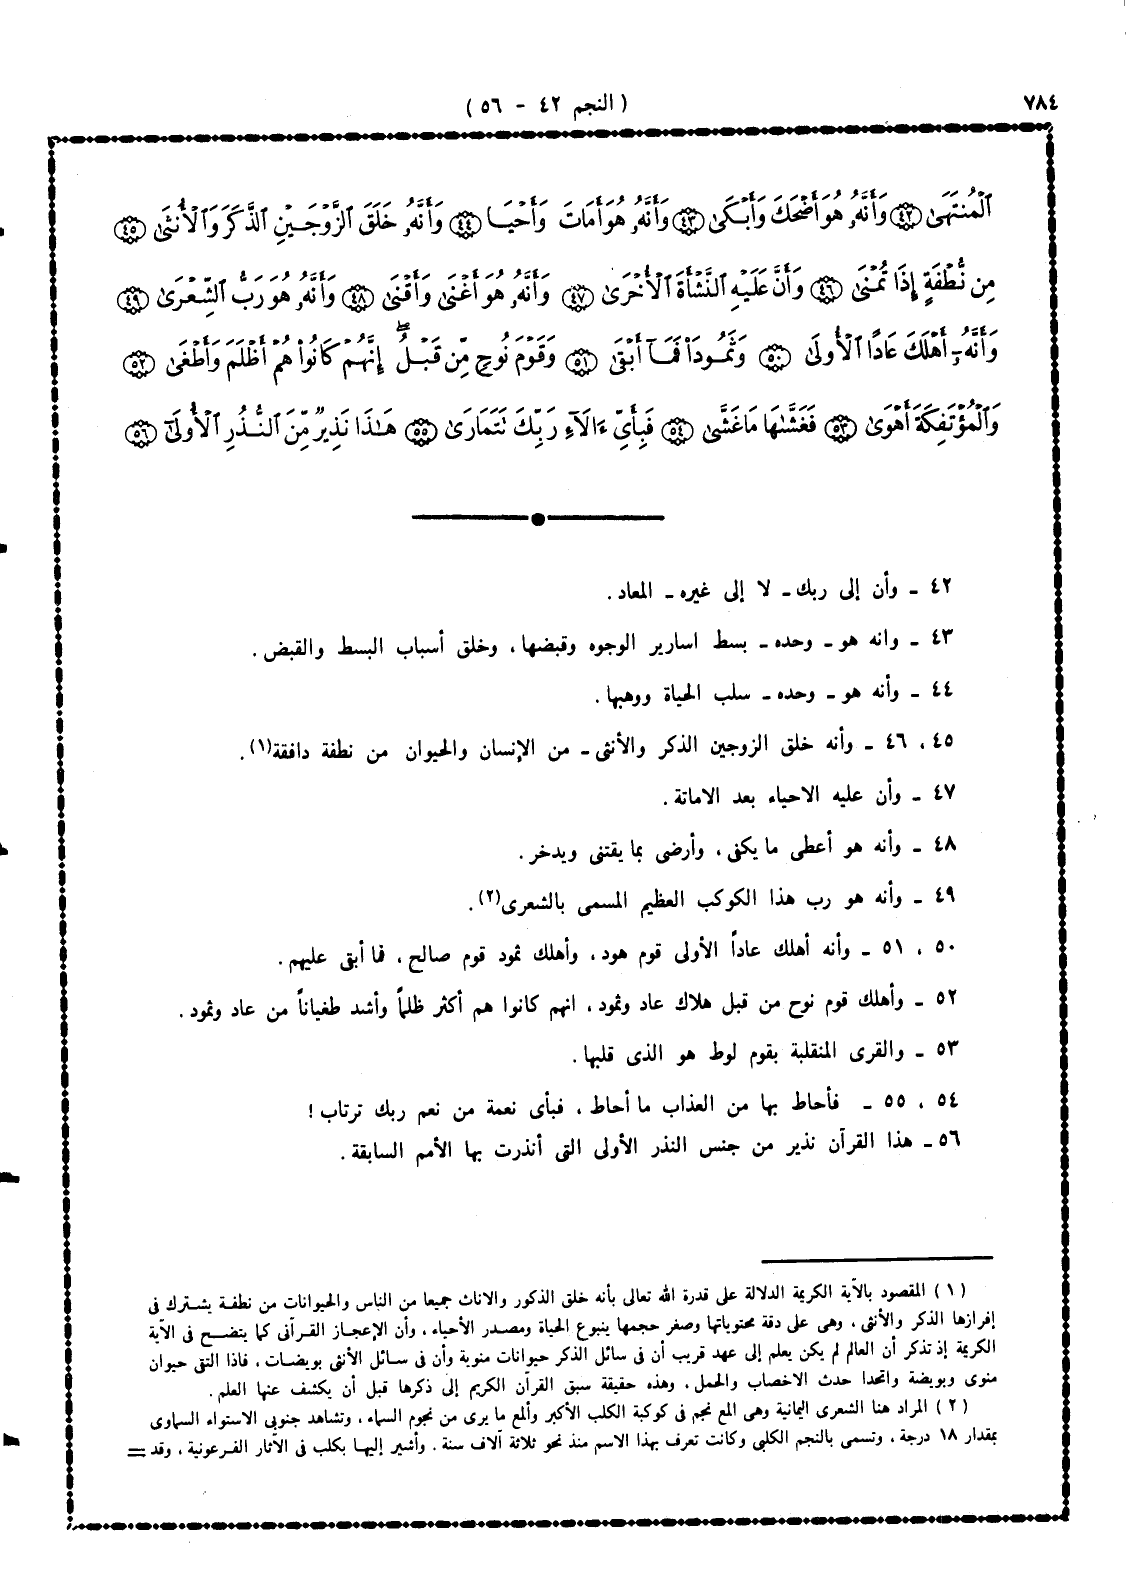 ٧٨٤
( النجم ٤٢ - ٥٦ )
ٱلْمُنتَهَىٰ ٤٣ وَأَنَّهُۥ هُوَ أَضْحَكَ وَأَبْكَىٰ ٤٣ وَأَنَّهُۥ هُوَ أَمَاتَ وَأَحْيَا ٤٤ وَأَنَّهُۥ خَلَقَ ٱلزَّوْجَيْنِ ٱلذَّكَرَ وَٱلْأُنثَىٰ ٤٥
مِن نُّطْفَةٍ إِذَا تُمْنَىٰ ٤٦ وَأَنَّ عَلَيْهِ ٱلنَّشْأَةَ ٱلْأُخْرَىٰ ٤٧ وَأَنَّهُۥ هُوَ أَغْنَىٰ وَأَقْنَىٰ ٤٨ وَأَنَّهُۥ هُوَ رَبُّ ٱلشِّعْرَىٰ ٤٩
وَأَنَّهُۥٓ أَهْلَكَ عَادًا ٱلْأُولَىٰ ٥٠ وَثَمُودَا۟ فَمَآ أَبْقَىٰ ٥١ وَقَوْمَ نُوحٍ مِّن قَبْلُ ۖ إِنَّهُمْ كَانُوا۟ هُمْ أَظْلَمَ وَأَطْغَىٰ ٥٢
وَٱلْمُؤْتَفِكَةَ أَهْوَىٰ ٥٣ فَغَشَّىٰهَا مَا غَشَّىٰ ٥٤ فَبِأَىِّ ءَالَآءِ رَبِّكَ تَتَمَارَىٰ ٥٥ هَـٰذَا نَذِيرٌ مِّنَ ٱلنُّذُرِ ٱلْأُولَىٰٓ ٥٦
٤٢ ـ وأن إلى ربك ـ لا إلى غيره ـ المعاد .
٤٣ ـ وانه هو ـ وحده ـ بسط اسارير الوجوه وقبضها ، وخلق أسباب البسط والقبض .
٤٤ ـ وأنه هو ـ وحده ـ سلب الحياة ووهبها .
٤٥ ، ٤٦ ـ وأنه خلق الزوجين الذكر والأنثى ـ من الإنسان والحيوان من نطفة دافقة(١) .
٤٧ ـ وأن عليه الاحياء بعد الاماتة .
٤٨ ـ وأنه هو أعطى ما يكفى ، وأرضى بما يقتنى ويدخر .
٤٩ ـ وأنه هو رب هذا الكوكب العظيم المسمى بالشعرى(٢) .
٥٠ ، ٥١ ـ وأنه أهلك عاداً الأولى قوم هود ، وأهلك ثمود قوم صالح ، فما أبقى عليهم .
٥٢ ـ وأهلك قوم نوح من قبل هلاك عاد وثمود ، انهم كانوا هم أكثر ظلماً وأشد طغياناً من عاد وثمود .
٥٣ ـ والقرى المنقلبة بقوم لوط هو الذى قلبها .
٥٤ ، ٥٥ ـ فأحاط بها من العذاب ما أحاط ، فبأى نعمة من نعم ربك ترتاب !
٥٦ ـ هذا القرآن نذير من جنس النذر الأولى التى أنذرت بها الأمم السابقة .
( ١ ) المقصود بالآية الكريمة الدلالة على قدرة الله تعالى بأنه خلق الذكور والاناث جميعا من الناس والحيوانات من نطفة يشترك فى
إفرازها الذكر والأنثى ، وهى على دقة محتوياتها وصغر حجمها ينبوع الحياة ومصدر الأحياء ، وأن الإعجاز القرآنى كما يتضح فى الآية
الكريمة إذ تذكر أن العالم لم يكن يعلم إلى عهد قريب أن فى سائل الذكر حيوانات منوية وأن فى سائل الأنثى بويضات ، فاذا التقى حيوان
منوى وبويضة واتحدا حدث الاخصاب والحمل ، وهذه حقيقة سبق القرآن الكريم إلى ذكرها قبل أن يكشف عنها العلم .
( ٢ ) المراد هنا الشعرى اليمانية وهى المع نجم فى كوكبة الكلب الأكبر وألمع ما يرى من نجوم السماء ، وتشاهد جنوبى الاستواء السماوى
بمقدار ١٨ درجة ، وتسمى بالنجم الكلبى وكانت تعرف بهذا الاسم منذ نحو ثلاثة آلاف سنة . وأشير إليها بكلب فى الآثار الفرعونية ، وقد =